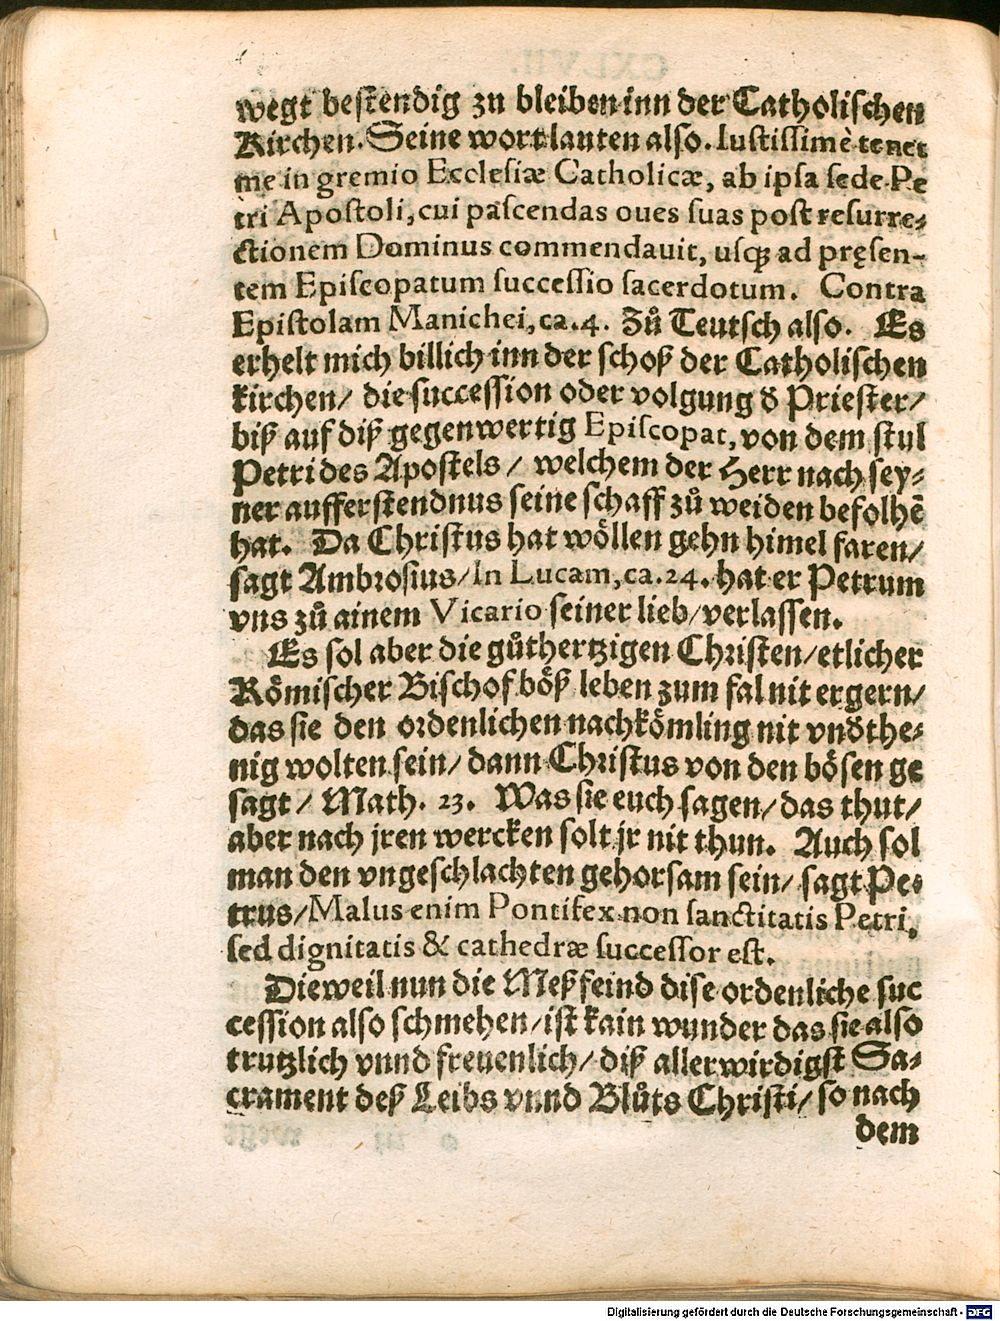 wegt bestendig zu bleiben inn der Catholischen
Kirchen. Seine wort lauten also. Iustissimè tenet
me in gremio Ecclesiæ Catholicæ, ab ipsa sede Pe
tri Apostoli, cui pascendas oues suas post resurre⸗
ctionem Dominus commendauit, usq́; ad pręsen-
tem Episcopatum successio sacerdotum. Contra
Epistolam Manichei, ca. 4. Zů Teutsch also. Es
erhelt mich billich inn der schoß der Catholischen
kirchen/ die succession oder volgung ð Priester/
biß auf diß gegenwertig Episcopat, von dem stul
Petri des Apostels/ welchem der Herr nach sey⸗
ner aufferstendnus seine schaff zů weiden befolhē
hat. Da Christus hat wöllen gehn himel faren/
sagt Ambrosius/ In Lucam, ca. 24. hat er Petrum
vns zů ainem Vicario seiner lieb/ verlassen.
Es sol aber die gůthertzigen Christen/ etlicher
Römischer Bischof böß leben zum fal nit ergern/
das sie den ordenlichen nachkömling nit vnðthe⸗
nig wolten sein/ dann Christus von den bösen ge
sagt/ Math. 23. Was sie euch sagen/ das thut/
aber nach jren wercken solt jr nit thun. Auch sol
man den vngeschlachten gehorsam sein/ sagt Pe⸗
trus/ Malus enim Pontifex non sanctitatis Petri,
sed dignitatis & cathedræ successor est.
Dieweil nun die Meßfeind dise ordenliche suc
cession also schmehen/ ist kain wunder das sie also
trutzlich vnnd freuenlich/ diß allerwirdigst Sa⸗
crament deß Leibs vnnd Blůts Christi/ so nach
dem
Digitalisierung gefördert durch die Deutsche Forschungsgemeinschaft - DFG